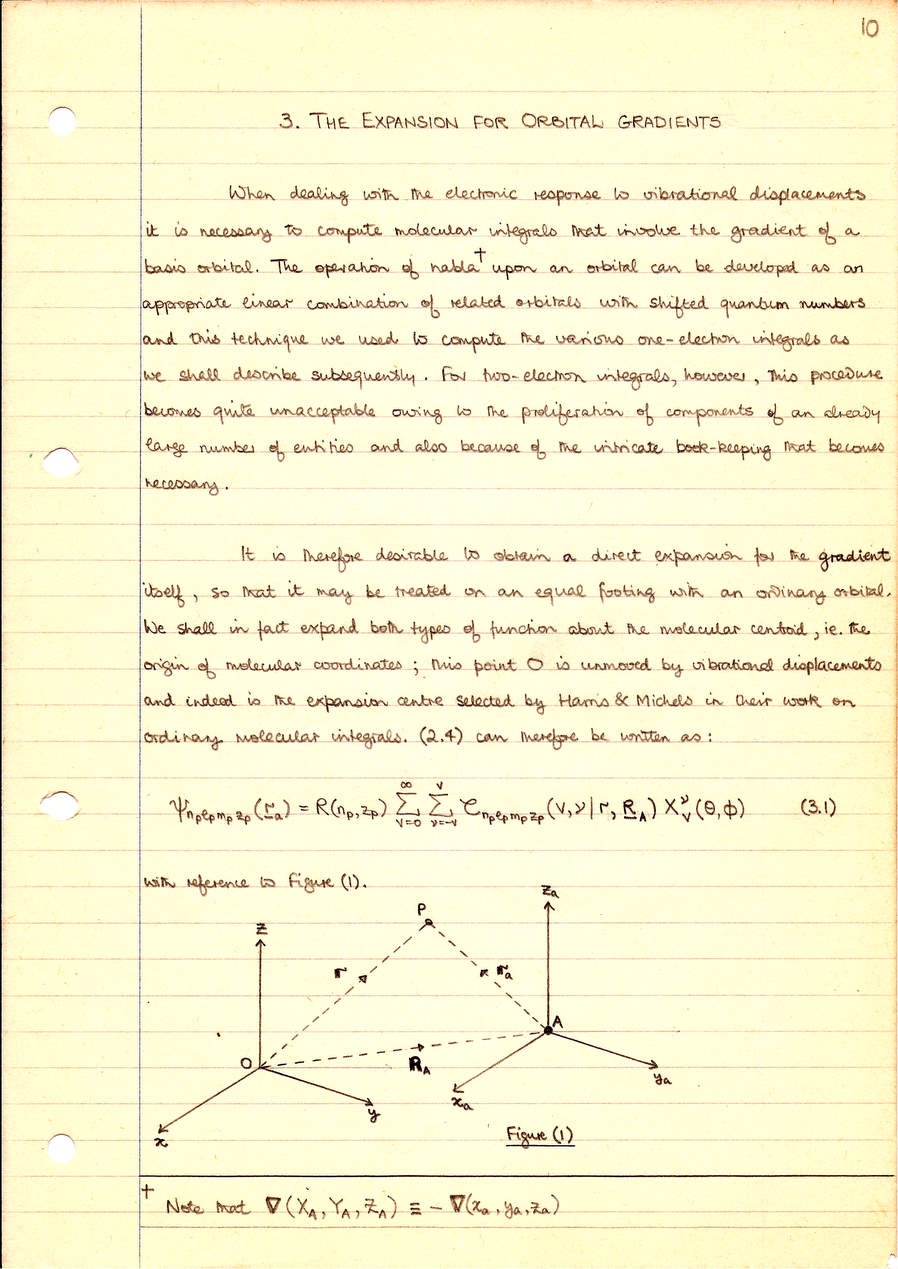 10
3. THE EXPANSION FOR ORBITAL GRADIENTS
When dealing with the electronic response to vibrational displacements
it is necessary to compute molecular integrals that involve the gradient of a
basis orbital. The operation of nabla† upon an orbital can be developed as an
appropriate linear combination of related orbitals with shifted quantum numbers
and this technique we used to compute the various one-electron integrals as
we shall describe subsequently. For two-electron integrals, however, this procedure
becomes quite unacceptable owing to the proliferation of components of an already
large number of entities and also because of the intricate book-keeping that becomes
necessary.
It is therefore desirable to obtain a direct expansion for the gradient
itself, so that it may be treated on an equal footing with an ordinary orbital.
We shall in fact expand both types of function about the molecular centroid, ie. the
origin of molecular coordinates; this point O is unmoved by vibrational displacements
and indeed is the expansion centre selected by Harris & Michels in their work on
ordinary molecular integrals. (2.4) can therefore be written as:
Ψ_{n_p ℓ_p m_p z_p}(r_a) = R(n_p, z_p) ∑_{V=0}^{∞} ∑_{ν=-V}^{V} C_{n_p ℓ_p m_p z_p}(V, ν | r, R_A) X_V^ν(θ, φ) (3.1)
with reference to Figure (1).
Z P Z_a
r r_a
O R_A A
x y x_a y_a
Figure (1)
† Note that ∇(X_A, Y_A, Z_A) ≡ − ∇(x_a, y_a, z_a)